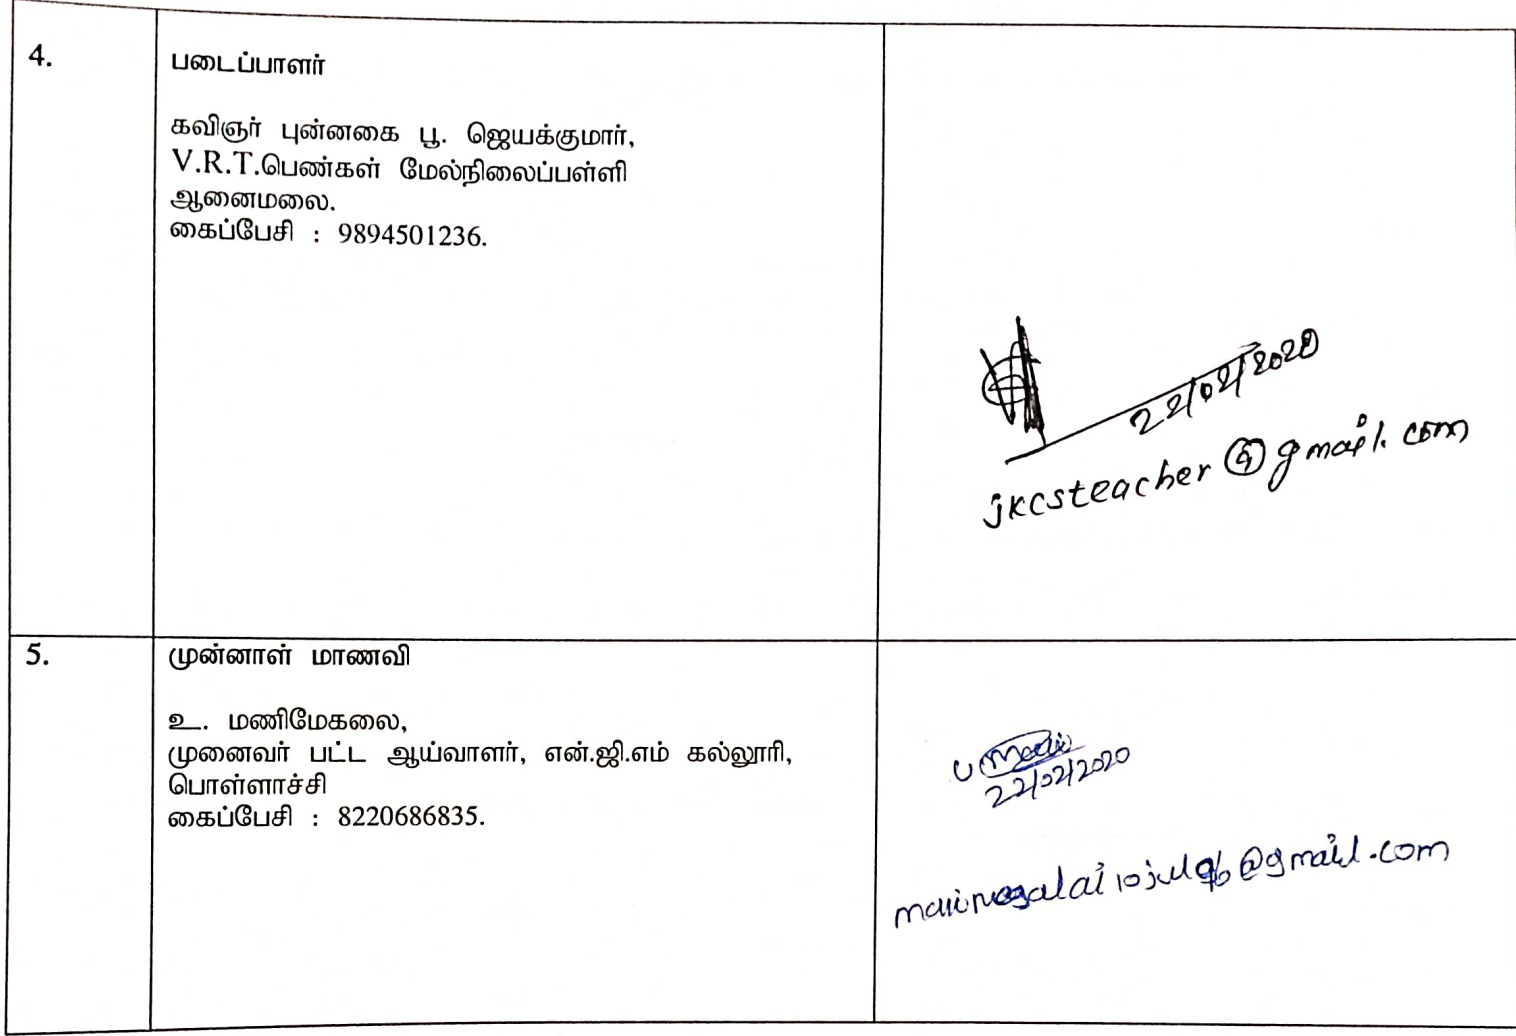 4.
படைப்பாளர்
கவிஞர் புன்னகை பூ. ஜெயக்குமார்,
V.R.T.பெண்கள் மேல்நிலைப்பள்ளி
ஆனைமலை.
கைப்பேசி : 9894501236.
22/02/2020
jkcsteacher@gmail.com
5.
முன்னாள் மாணவி
உ. மணிமேகலை,
முனைவர் பட்ட ஆய்வாளர், என்.ஜி.எம் கல்லூரி,
பொள்ளாச்சி
கைப்பேசி : 8220686835.
22/02/2020